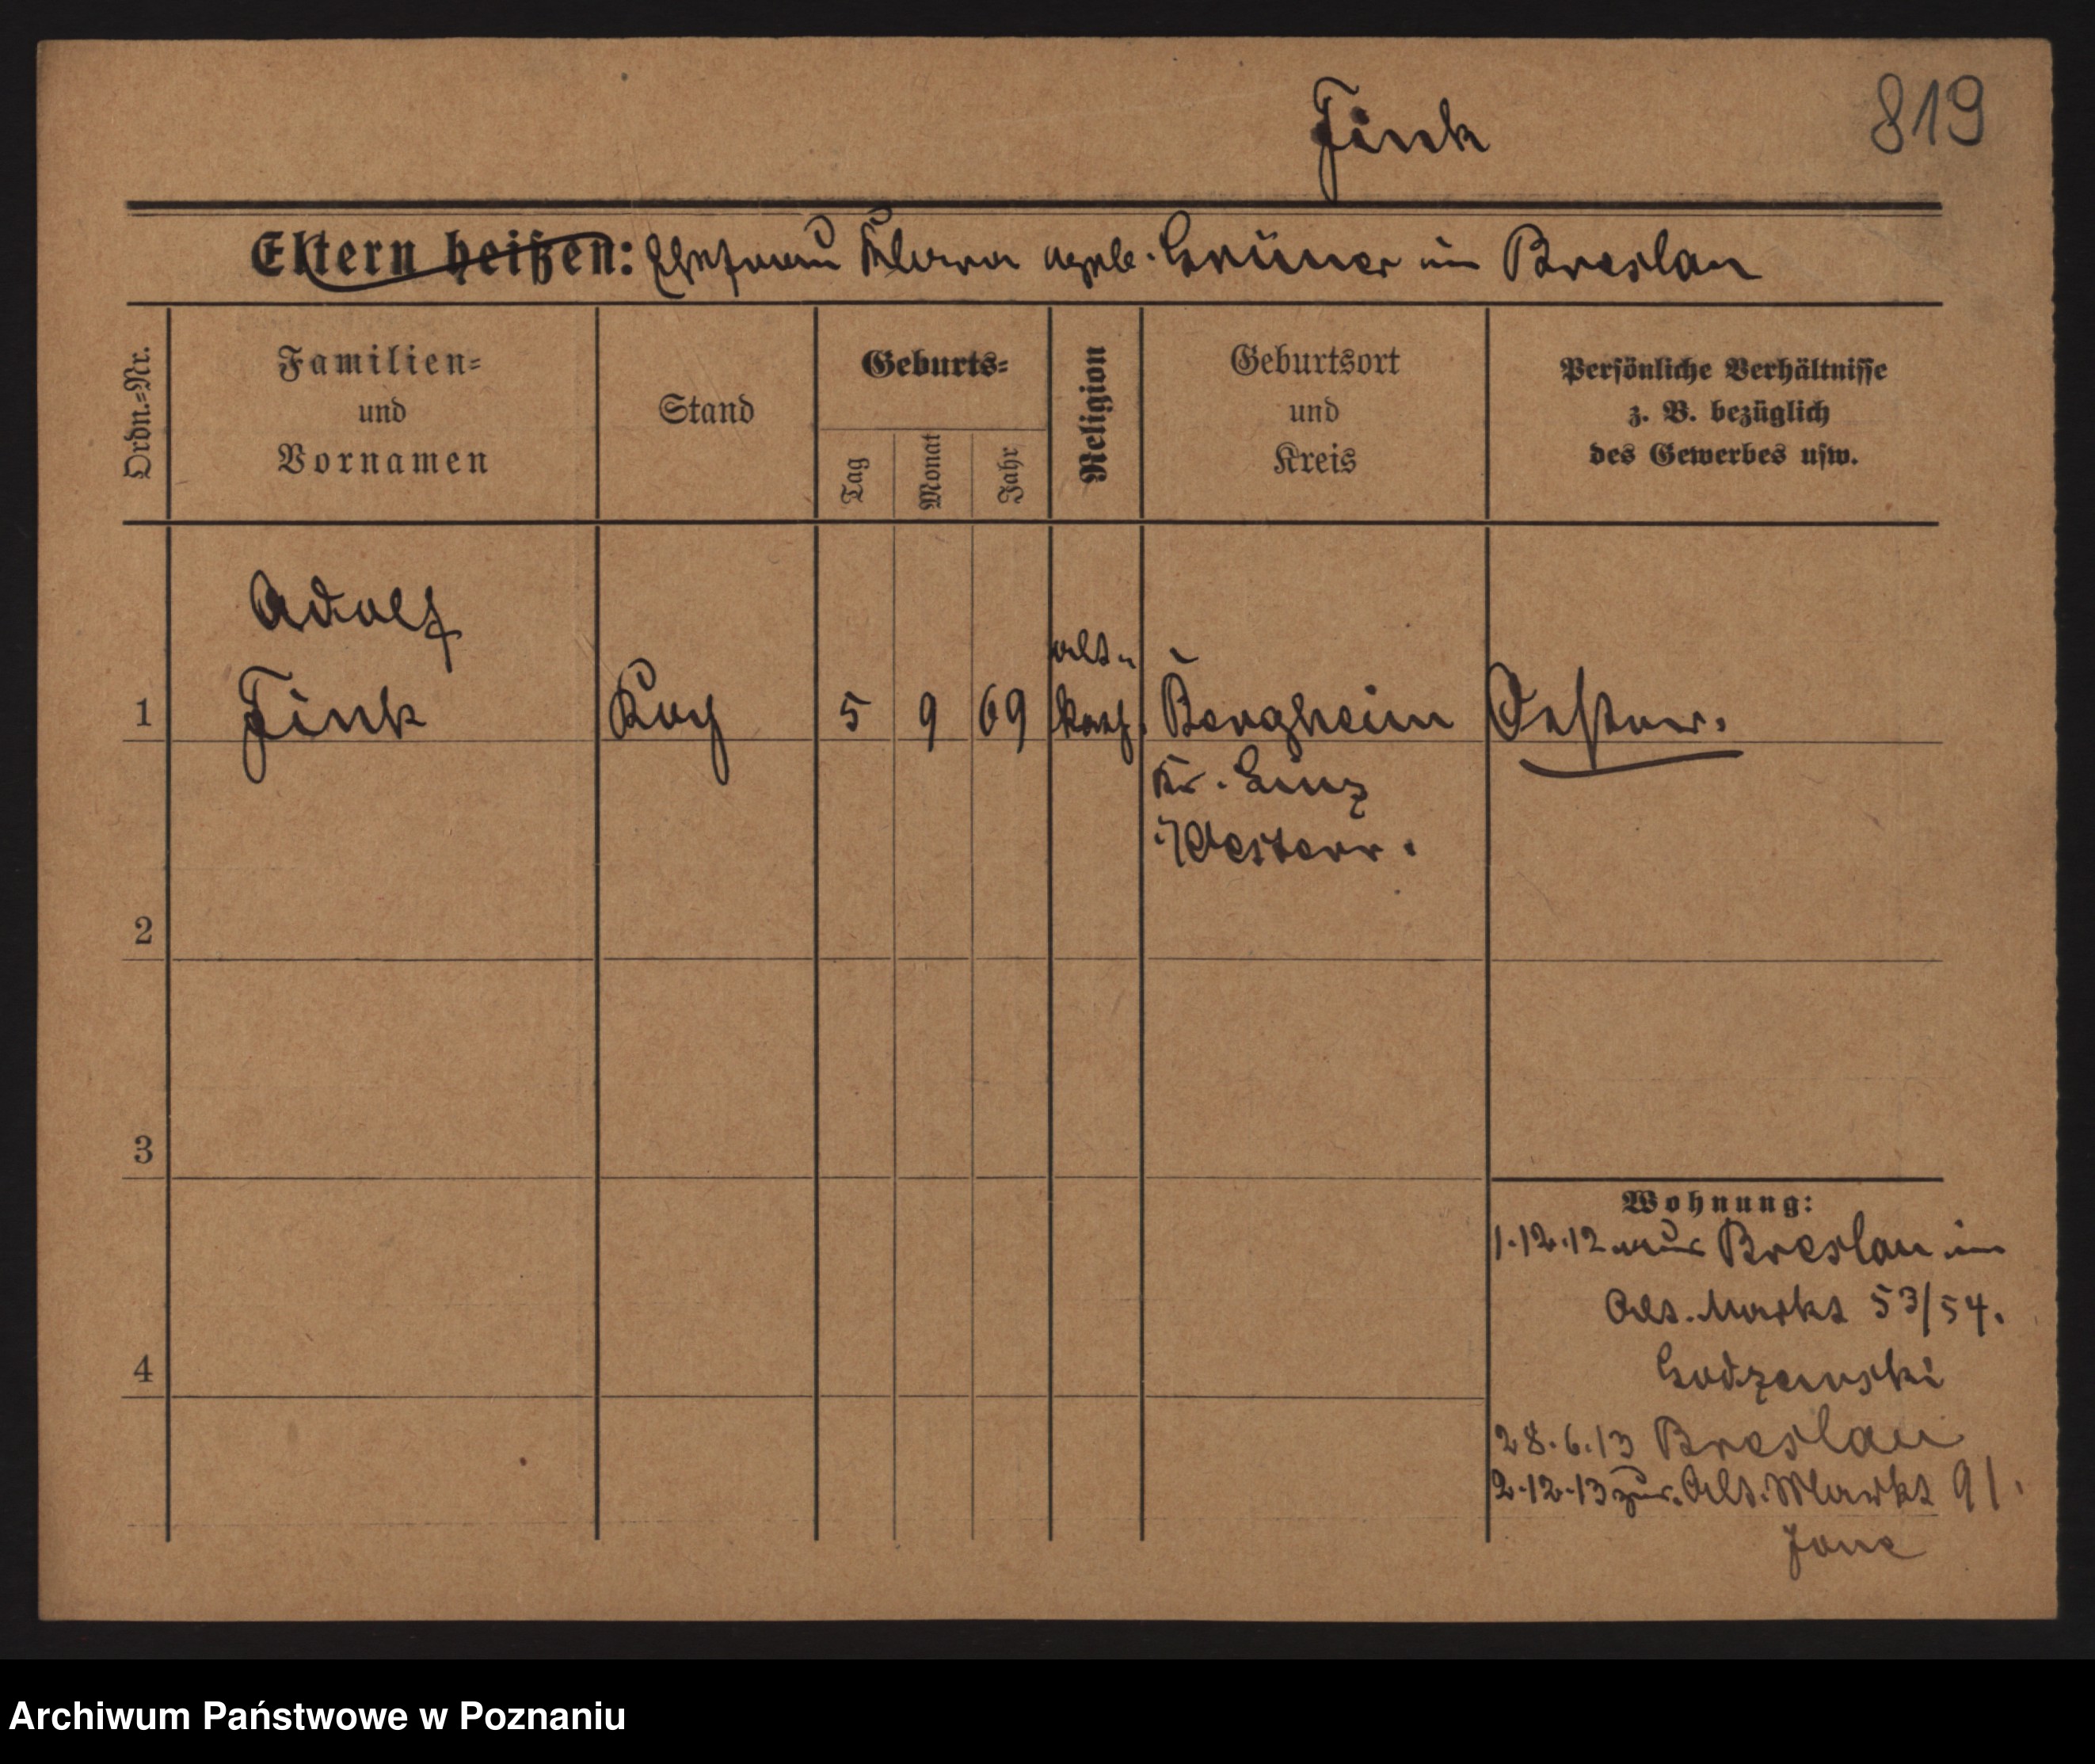 Fink 819
Eltern heißen: Ehefrau Klara geb. Grüner in Breslau
Ordn.-Nr.
Familien-
und
Vornamen
Stand
Geburts-
Tag
Monat
Jahr
Religion
Geburtsort
und
Kreis
Persönliche Verhältnisse
z. B. bezüglich
des Gewerbes usw.
Adolf
alt-
1 Fink 5 9 69 kath. Bergheim Oesterr.
Kr. Linz
Oesterr.
2
3
Wohnung:
1.12.12 aus Breslau in
Alt. Markt 53/54.
4
28.6.13 Breslau
2.12.13 zur. Alt. Markt 91.
Archiwum Państwowe w Poznaniu